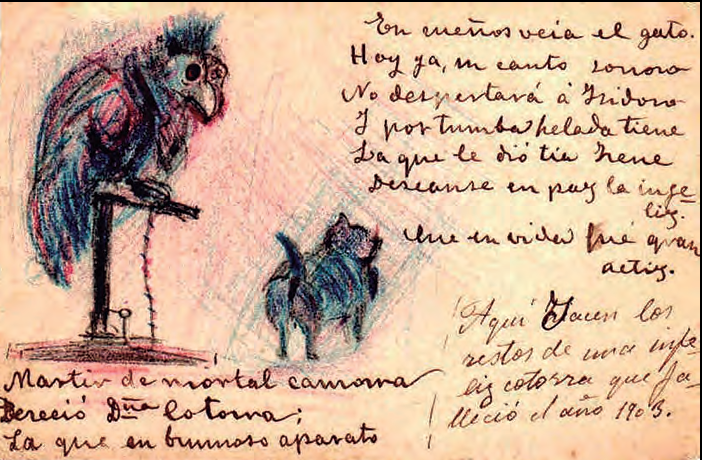 Martir de mortal camorra
Pereció Dña Cotorra;
La que en brumoso aparato
En sueños veia el gato.
Hoy ya, su canto sonoro
No despertará á Isidoro
Y por tumba helada tiene
La que le dió tia Irene
Descanse en paz la infe-
liz.
Que en vida fué gran
actriz.
Aqui Yacen los
restos de una infe-
liz cotorra que fa-
lleció el año 1903.